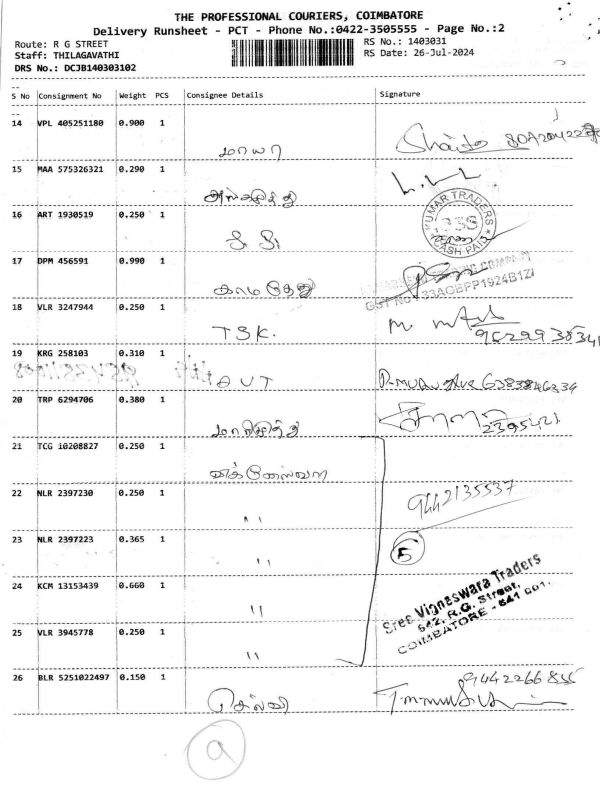 THE PROFESSIONAL COURIERS, COIMBATORE
Delivery Runsheet - PCT - Phone No.:0422-3505555 - Page No.:2
Route: R G STREET
RS No.: 1403031
Staff: THILAGAVATHI
RS Date: 26-Jul-2024
DRS No.: DCJB140303102
S No Consignment No Weight PCS Consignee Details Signature
14 VPL 405251180 0.900 1
மாயா
15 MAA 575326321 0.290 1
16 ART 1930519 0.250 1
KUMAR TRADERS
CASH PAID
17 DPM 456591 0.990 1
காமதேனு
GST NO 33AGBPP1924B1ZI
18 VLR 3247944 0.250 1
TSK.
19 KRG 258103 0.310 1
20 TRP 6294706 0.380 1
மாரிமுத்து
2395421
21 TCG 10208827 0.250 1
விக்னேஸ்வரா
22 NLR 2397230 0.250 1
"
9442135537
23 NLR 2397223 0.365 1
"
5
24 KCM 13153439 0.660 1
"
Sree Vigneswara Traders
642, R.G. Street,
COIMBATORE - 641 001.
25 VLR 3945778 0.250 1
"
26 BLR 5251022497 0.150 1
செல்வி
9